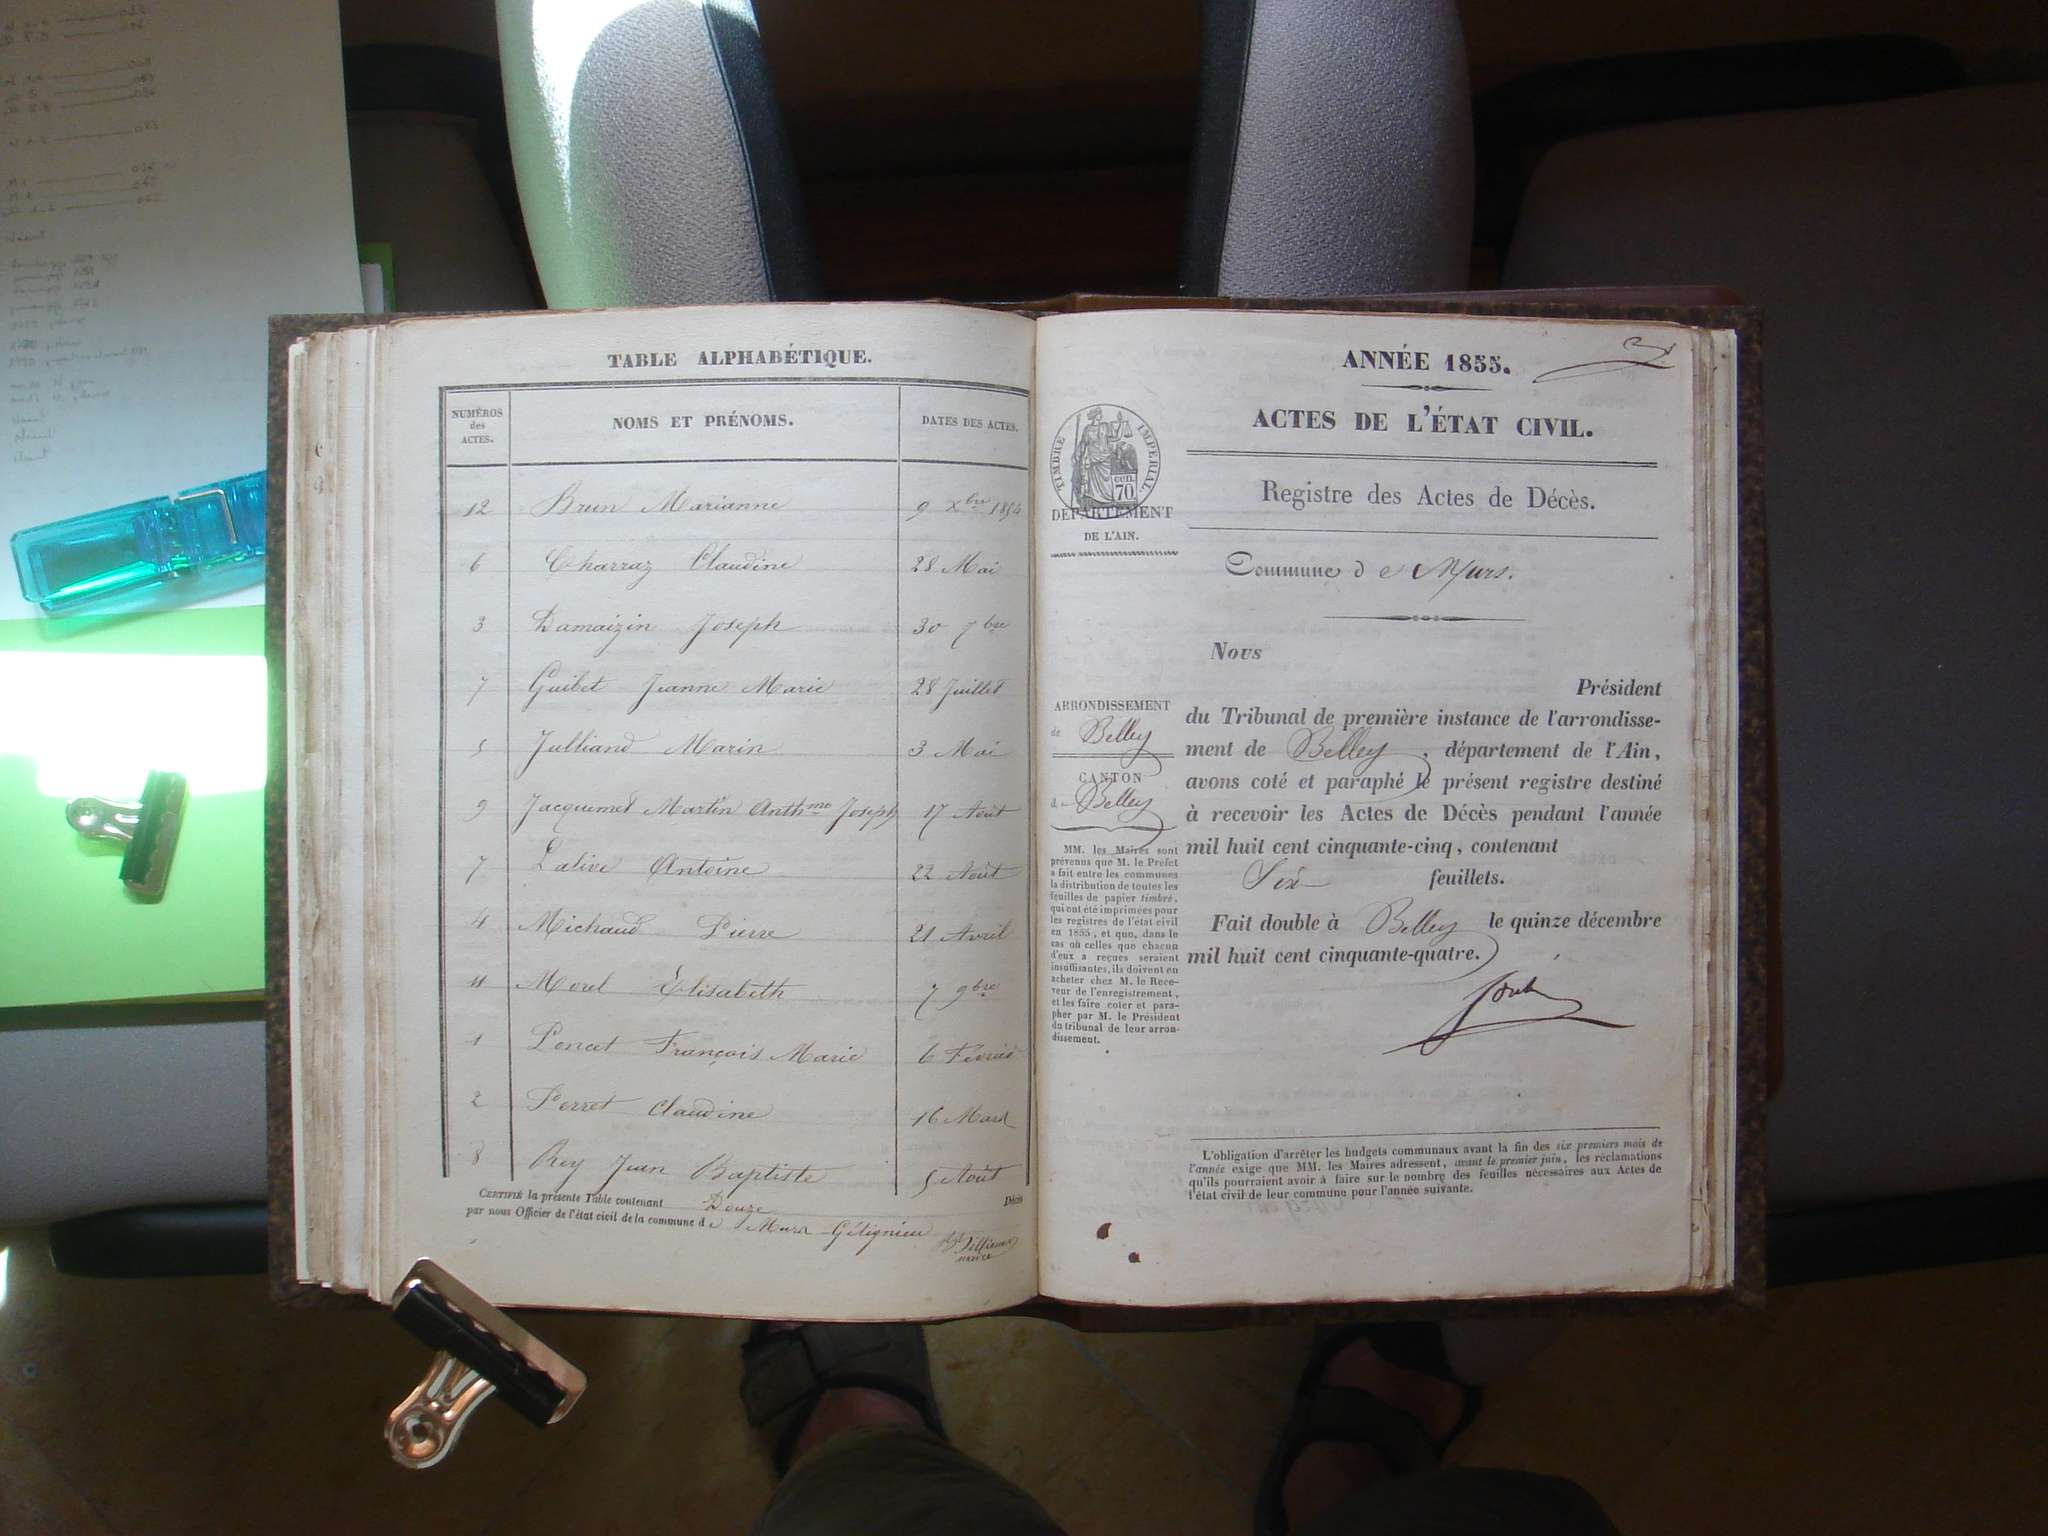 TABLE ALPHABÉTIQUE.
NUMÉROS des ACTES.
NOMS ET PRÉNOMS.
DATES DES ACTES.
12 Brun Marianne 9 Xbre 1854
6 Charraz Claudine 28 Mai
3 Damaizin Joseph 30 7bre
7 Guibet Jeanne Marie 28 Juillet
5 Julliand Marin 3 Mai
9 Jacquemet Martin Anthme Joseph 17 Août
7 Lalive Antoine 22 Août
4 Michaud Pierre 21 Avril
11 Morel Elisabeth 7 9bre
1 Poncet François Marie 6 Février
2 Perret Claudine 16 Mars
8 Rey Jean Baptiste 5 Août
CERTIFIÉ la présente Table contenant Douze Décès
par nous Officier de l'état civil de la commune d e Murs-Gélignieu
maire
ANNÉE 1855.
ACTES DE L'ÉTAT CIVIL.
TIMBRE IMPÉRIAL
cen. 70
DÉPARTEMENT
DE L'AIN.
Registre des Actes de Décès.
Commune d e Murs.
Nous
Président
du Tribunal de première instance de l'arrondisse-
ment de Belley, département de l'Ain,
avons coté et paraphé le présent registre destiné
à recevoir les Actes de Décès pendant l'année
mil huit cent cinquante-cinq, contenant
Six feuillets.
Fait double à Belley le quinze décembre
mil huit cent cinquante-quatre.
ARRONDISSEMENT
de Belley
CANTON
d Belley
MM. les Maires sont
prévenus que M. le Préfet
a fait entre les communes
la distribution de toutes les
feuilles de papier timbré,
qui ont été imprimées pour
les registres de l'état civil
en 1855, et que, dans le
cas où celles que chacun
d'eux a reçues seraient
insuffisantes, ils doivent en
acheter chez M. le Rece-
veur de l'enregistrement,
et les faire coter et para-
pher par M. le Président
du tribunal de leur arron-
dissement.
L'obligation d'arrêter les budgets communaux avant la fin des six premiers mois de
l'année exige que MM. les Maires adressent, avant le premier juin, les réclamations
qu'ils pourraient avoir à faire sur le nombre des feuilles nécessaires aux Actes de
l'état civil de leur commune pour l'année suivante.